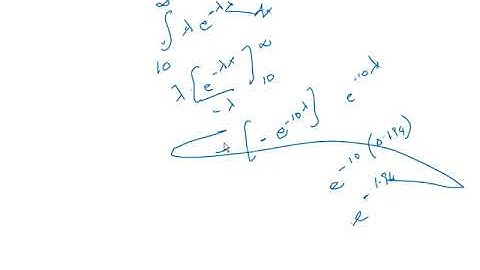 ∫₁₀^∞ λ e^{-λx} dx
λ [e^{-λx} / -λ]₁₀^∞
- [- e^{-10λ}] e^{-10λ}
e^{-10(0.194)}
e^{-1.94}